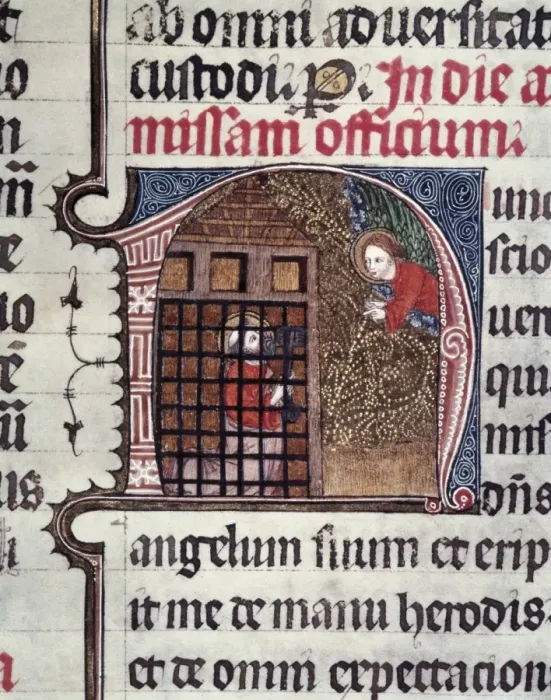 ab omni aduersitat
custodi. P. In die a
missam officium.
Nunc
scio
uer
qui
mis
dñs
angelum suum et erip
it me de manu herodis.
et de omni expectacion